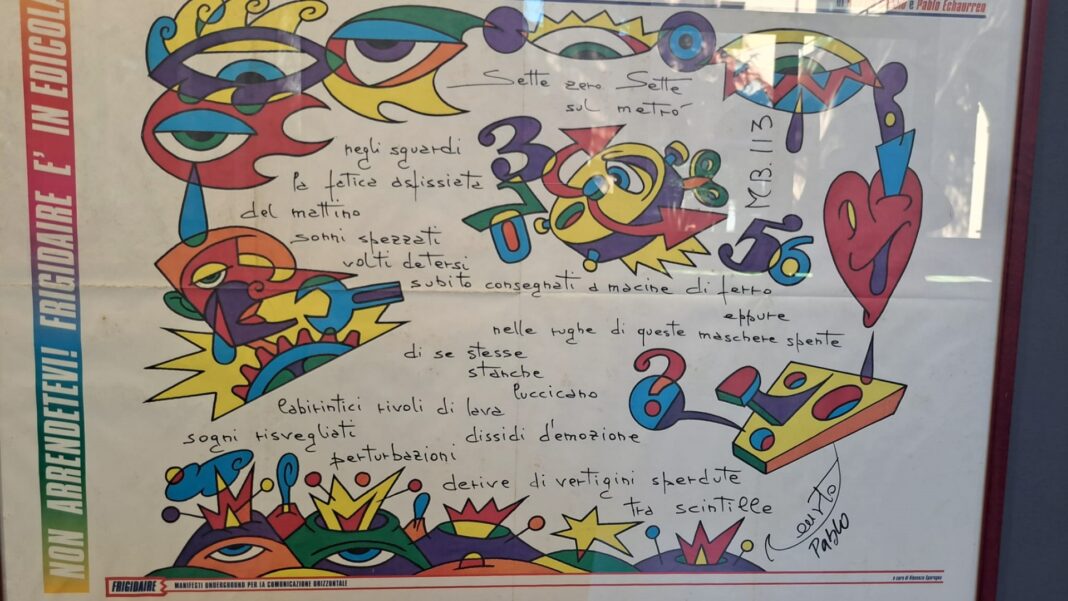 NON ARRENDETEVI! FRIGIDAIRE E' IN EDICOLA
e Pablo Echaurren
Sette zero Sette
sul metrò
M.B. 113
negli sguardi
la fatica asfissiata
del mattino
sonni spezzati
volti detersi
subito consegnati a macine di ferro
eppure
nelle rughe di queste maschere spente
di se stesse
stanche
luccicano
labirintici rivoli di lava
sogni risvegliati
dissidi d'emozione
perturbazioni
derive di vertigini sperdute
tra scintille
3
7
0
8
5
6
?
Pablo
FRIGIDAIRE MANIFESTI UNDERGROUND PER LA COMUNICAZIONE ORIZZONTALE
a cura di Vincenzo Sparagna